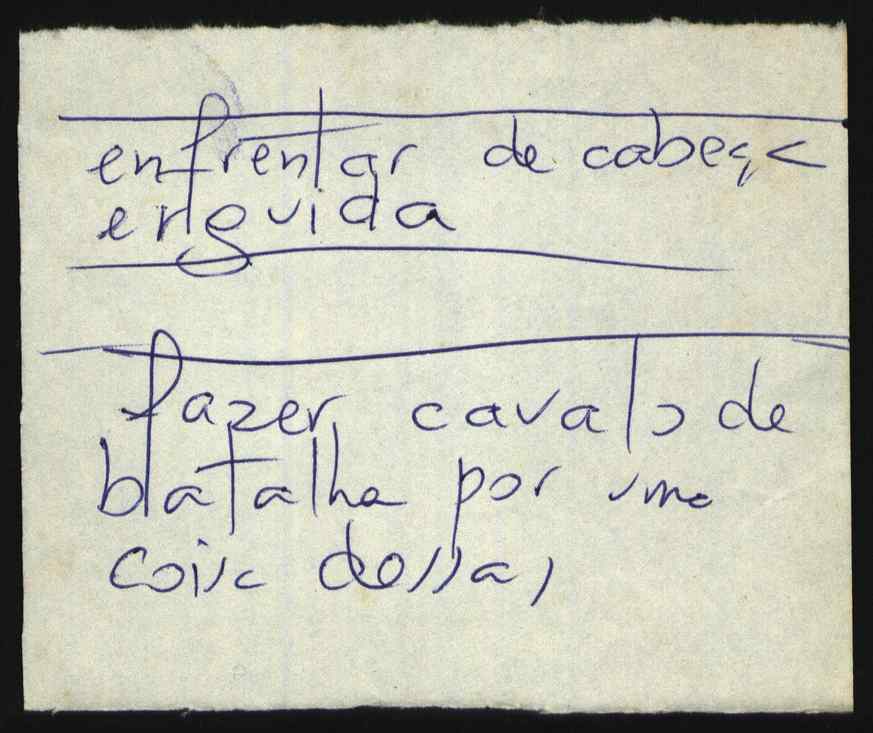 enfrentar de cabeça
erguida
fazer cavalo de
batalha por uma
coisa dessas